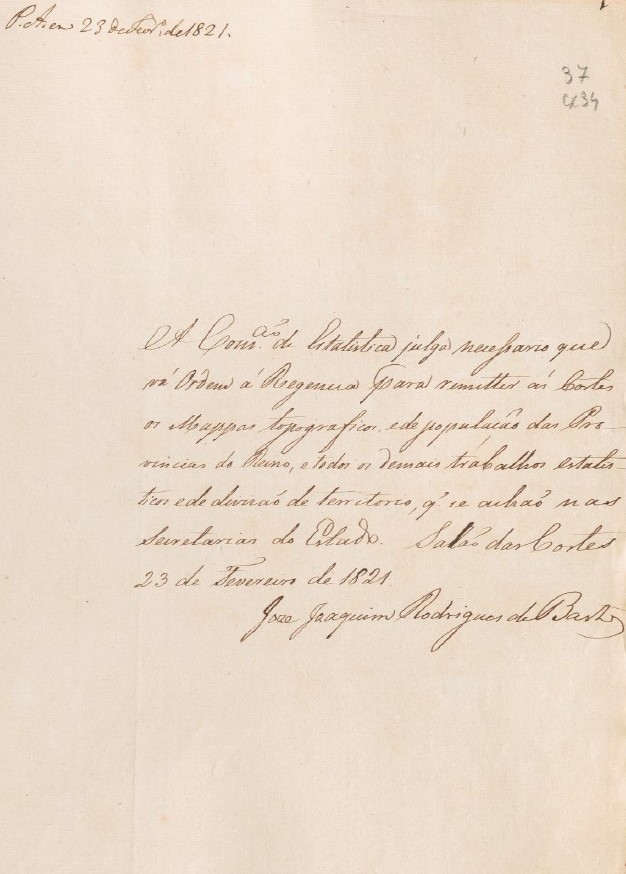 P. A. em 23 de Fever.º de 1821.
37
cx34
A Com.ção de Estatistica julga necessario que
vá Ordem á Regencia para remetter ás Cortes
os Mappas topograficos, e de população das Pro-
vincias do Reino, e todos os demais trabalhos estatis-
ticos e de divisaõ de territorio, q' se achaõ nas
Secretarias do Estado. Salaõ das Cortes
23 de Fevereiro de 1821
Joze Joaquim Rodrigues de Bastos